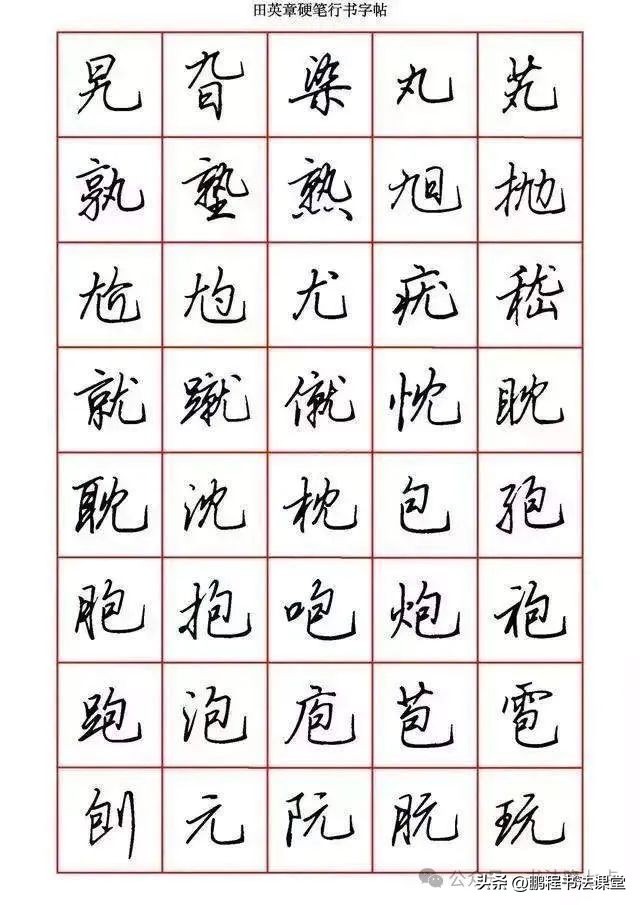 田英章硬笔行书字帖
旯 旮 染 丸 芄
孰 塾 熟 旭 抛
尬 尥 尤 疣 嵇
就 蹴 僦 忱 眈
耽 沈 枕 包 孢
胞 抱 咆 炮 袍
跑 泡 庖 苞 雹
刨 元 阮 朊 玩
公众号
头条 @鹏程书法课堂